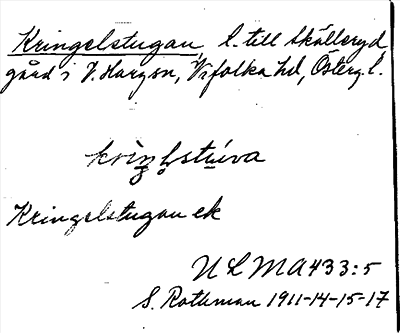 Kringelstugan, l. till Skålleryd,
gård i V. Harg sn, Vifolka hd, Österg. l.
Kringelstugan ek
ULMA 433:5
S. Rothman 1911-14-15-17